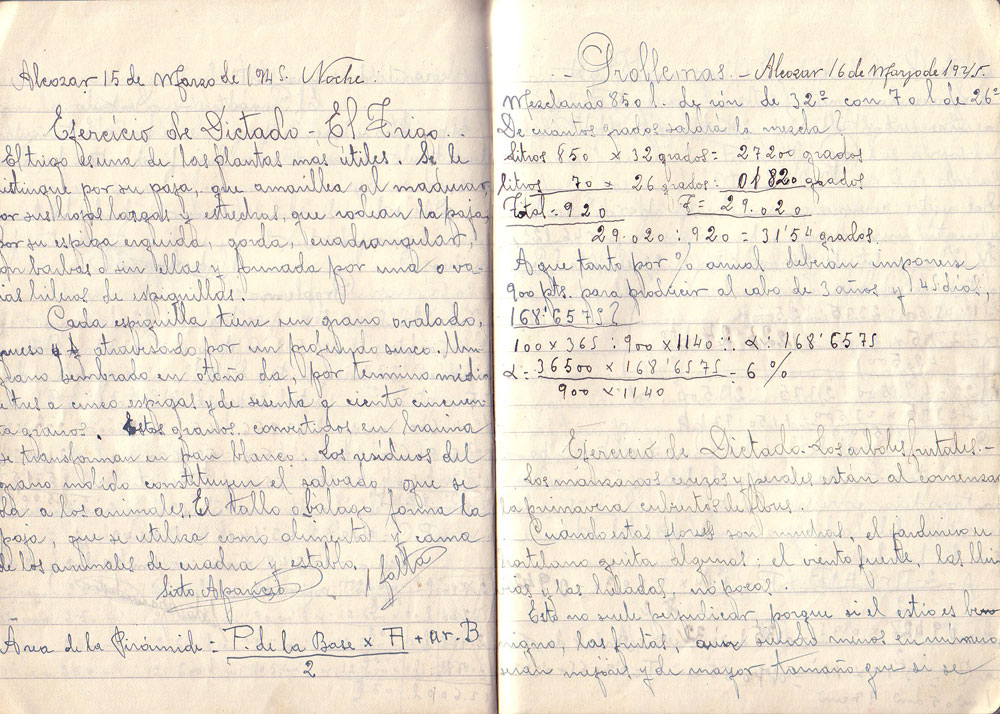 Alcozar 15 de Marzo de 1945. Noche.
Ejercicio de Dictado - El Trigo..
El trigo es una de las plantas más útiles. Se le
istingue por su paja, que amarillea al madurar,
or sus hojas largas y estrechas, que rodean la paja,
por su espiga erguida, gorda, cuadrangular,
on barbas o sin ellas y formada por una o va-
ias hileras de espiguillas.
Cada espiguilla tiene un grano ovalado,
grueso atravesado por un profundo surco. Un
grano sembrado en otoño da, por termino médio
e tres a cinco espigas y de sesenta a ciento cincuen-
ta granos. Estos granos, convertidos en haaina
se transforman en pan blanco. Los resíduos del
grano molido constituyen el salvado, que se
dá a los animales. El tallo o balago forma la
paja, que se utiliza como alimento y cama
de los animales de cuadra y establo.
Sixto Aparicio 1 falta
Área de la Pirámide = P. de la Base x A + ar. B
2
- Problemas. - Alcozar 16 de Marzo de 1945.
Mezclando 850 l. de rón de 32º con 70 l de 26º
De cuántos grados saldrá la mezcla?
Litros 850 x 32 grados = 27200 grados
litros 70 x 26 grados = 01820 grados
Total = 920 T = 29.020
29.020 : 920 = 31'54 grados.
A que tanto por % anual deberán imponerse
900 pts. para producir al cabo de 3 años y 45 días,
168'6575?
100 x 365 : 900 x 1140 :: α : 168'6575
α = 36500 x 168'6575 = 6 %
900 x 1140
Ejercicio de Dictado - Los árboles frutales. -
Los manzanos cerezos y perales están al comenzar
la primavera cubiertos de flores.
Cuándo estas flores son muchas, el jardinero u
hortelano quita algunas; el viento fuerte, las llu-
vias y las heladas, no pocas.
Esto no suele perjudicar, porque si el estío es be-
nigno, las frutas, aun siendo menos en número
serán mejores y de mayor tamaño que si se